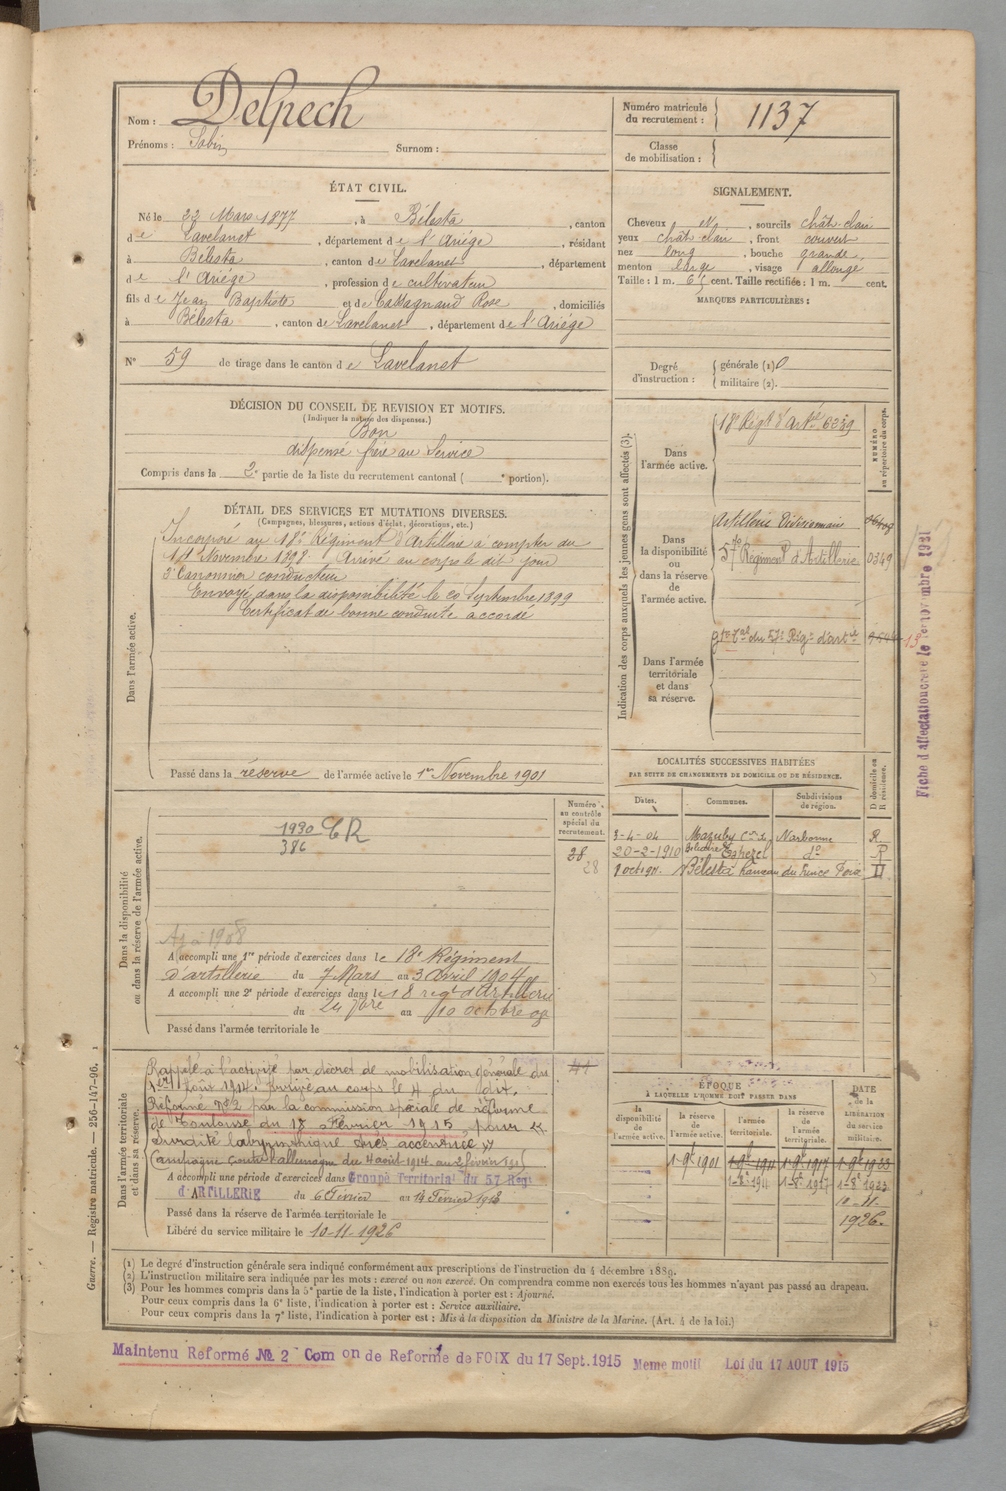 Nom : Delpech
Prénoms : Sabin Surnom :
Numéro matricule du recrutement : 1137
Classe de mobilisation :
ÉTAT CIVIL.
Né le 22 Mars 1877, à Bélesta, canton
de Lavelanet, département de l'Ariége, résidant
à Bélesta, canton de Lavelanet, département
de l'Ariége, profession de cultivateur
fils de Jean Baptiste et de Cassagnaud Rose, domiciliés
à Bélesta, canton de Lavelanet, département de l'Ariége
N° 59 de tirage dans le canton de Lavelanet
SIGNALEMENT.
Cheveux N, sourcils chât-clair
yeux chât clair, front couvert
nez long, bouche grande,
menton large, visage allongé
Taille : 1 m. 65 cent. Taille rectifiée : 1 m. cent.
MARQUES PARTICULIÈRES :
Degré d'instruction : générale (1) 0
militaire (2).
DÉCISION DU CONSEIL DE REVISION ET MOTIFS.
(Indiquer la nature des dispenses.)
Bon
dispensé frère au Service
Compris dans la 2e partie de la liste du recrutement cantonal ( e portion).
DÉTAIL DES SERVICES ET MUTATIONS DIVERSES.
(Campagnes, blessures, actions d'éclat, décorations, etc.)
Dans l'armée active.
Incorporé au 18e Régiment d'Artillerie à compter du
14 Novembre 1898. Arrivé au corps le dit jour
2e Canonnier conducteur
Envoyé dans la disponibilité le 20 Septembre 1899
Certificat de bonne conduite accordé
Passé dans la réserve de l'armée active le 1er Novembre 1901
Indication des corps auxquels les jeunes gens sont affectés (3).
NUMÉRO au répertoire du corps.
Dans l'armée active.
18e Régt d'Artie 6239
Dans la disponibilité ou dans la réserve de l'armée active.
Artillerie Divisionnaire
57e Régiment d'Artillerie 0349
Dans l'armée territoriale et dans sa réserve.
gpe Tal du 57e Rég. d'artie
Fiche d'affectation
LOCALITÉS SUCCESSIVES HABITÉES
PAR SUITE DE CHANGEMENTS DE DOMICILE OU DE RÉSIDENCE.
Dates. Communes. Subdivisions de région. D domicile ou R résidence.
3-4-04 Mazuby Narbonne R
20-2-1910 Espezel do R
Bélesta hameau du Foix D
Dans la disponibilité ou dans la réserve de l'armée active.
Numéro au contrôle spécial du recrutement.
28
28
1930 CR
386
A accompli une 1re période d'exercices dans le 18e Régiment
d'artillerie du 7 Mars au 3 Avril 1904
A accompli une 2e période d'exercices dans le 18 regt d'Artillerie
du 24 7bre au 10 octobre 08
Passé dans l'armée territoriale le
Dans l'armée territoriale et dans sa réserve.
Rappelé à l'activité par décret de mobilisation générale du
1er Août 1914. Arrivé au corps le 4 du dit.
Réformé N° 2 par la commission spéciale de réforme
de Toulouse du 18 Février 1915 pour «
surdité labyrinthique très accentuée »
Campagne contre l'allemagne du 4 août 1914 au 2 février 1915
A accompli une période d'exercices dans Groupe Territorial du 57 Régt
d'ARTILLERIE du 6 Février au 14 Février 1913
Passé dans la réserve de l'armée territoriale le
Libéré du service militaire le 10-11-1926
ÉPOQUE
À LAQUELLE L'HOMME DOIT PASSER DANS
la disponibilité de l'armée active. la réserve de l'armée active. l'armée territoriale. la réserve de l'armée territoriale. DATE de la LIBÉRATION du service militaire.
1-9e 1901 1-9e 1911 1-9e 1917 1-9e 1923
1-8e 1911 1-8e 1917 1-8e 1923
10-11-
1926.
(1) Le degré d'instruction générale sera indiqué conformément aux prescriptions de l'instruction du 4 décembre 1889.
(2) L'instruction militaire sera indiquée par les mots : exercé ou non exercé. On comprendra comme non exercés tous les hommes n'ayant pas passé au drapeau.
(3) Pour les hommes compris dans la 5e partie de la liste, l'indication à porter est : Ajourné.
Pour ceux compris dans la 6e liste, l'indication à porter est : Service auxiliaire.
Pour ceux compris dans la 7e liste, l'indication à porter est : Mis à la disposition du Ministre de la Marine. (Art. 4 de la loi.)
Guerre. — Registre matricule. — 256-147-96.
Maintenu Reformé № 2 Com on de Reforme de FOIX du 17 Sept. 1915 Meme motif Loi du 17 AOUT 1915